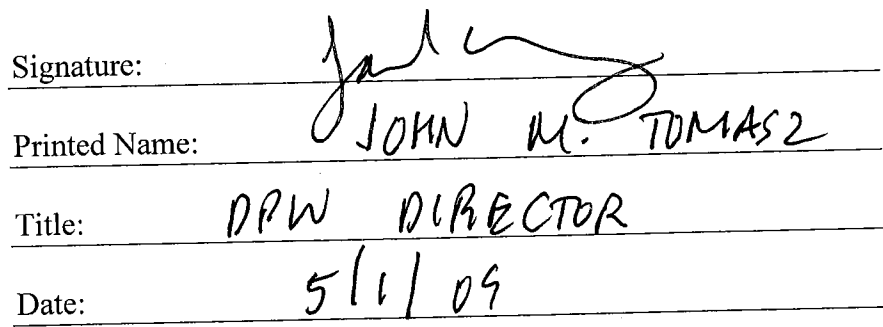 Signature:
Printed Name: JOHN M. TOMASZ
Title: DPW DIRECTOR
Date: 5/1/09